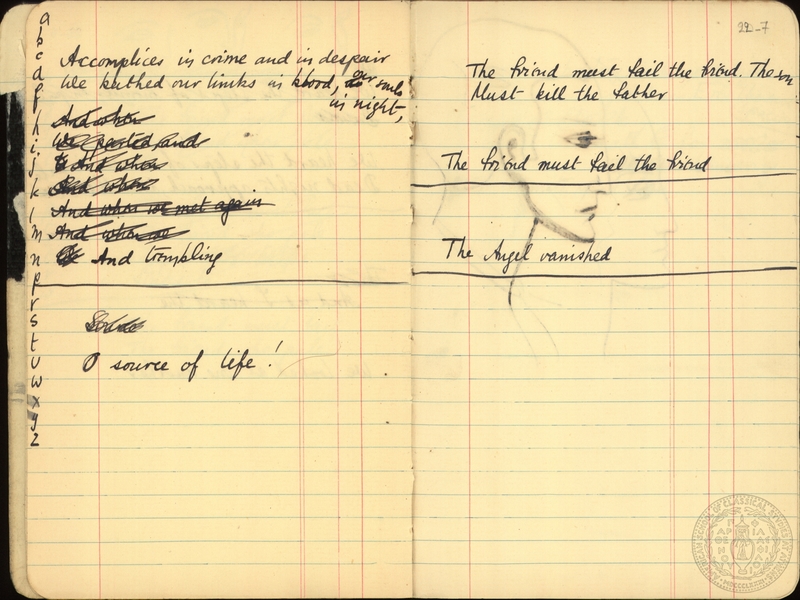 a
b
c
d
f
h
i
j
k
l
m
n
p
r
s
t
u
w
x
y
z
Accomplices in crime and in despair
We bathed our limbs in blood, our souls
in night,
And when
We parted, and
And when
And when
And when we met again
And when we
And trembling
O source of life!
22-7
The friend must fail the friend. The son
Must kill the father
The friend must fail the friend
The Angel vanished